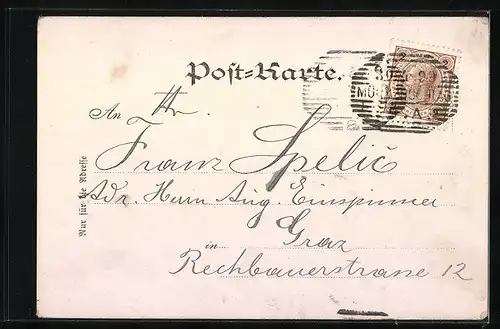 Post-Karte.
An Hr.
Franz Spelič
Adr. Herrn Aug. Einspinner
in Graz
Rechbauerstrasse 12
Nur für die Adresse